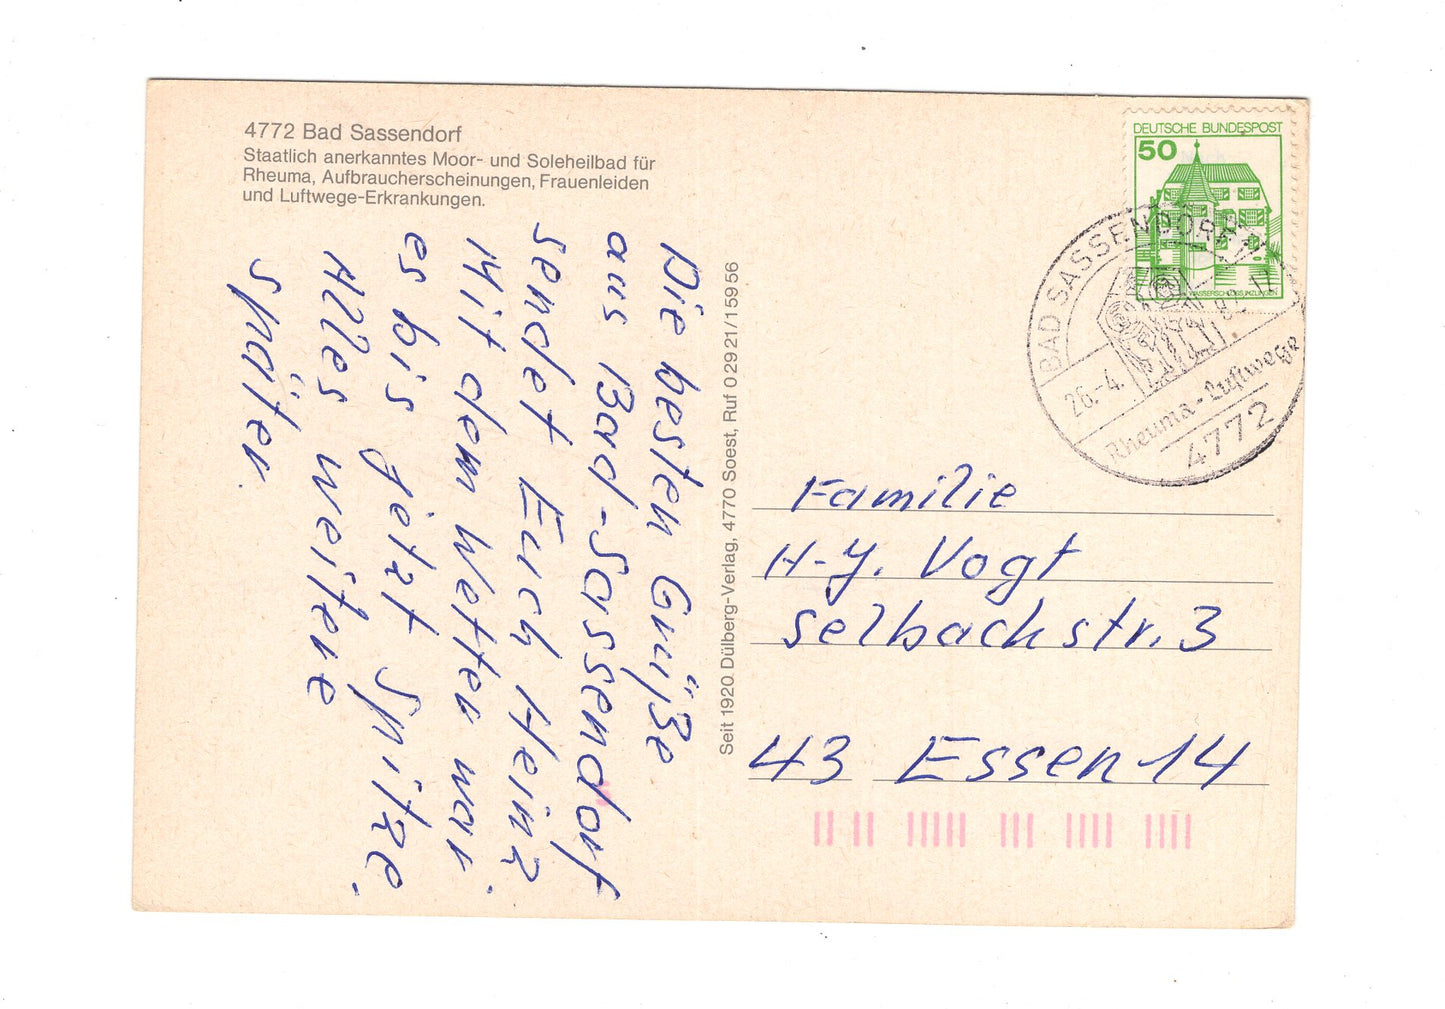 4772 Bad Sassendorf
Staatlich anerkanntes Moor- und Soleheilbad für
Rheuma, Aufbraucherscheinungen, Frauenleiden
und Luftwege-Erkrankungen.
Die besten Grüße
aus Bad-Sassendorf
sendet Euch Heinz.
Mit dem Wetter war
es bis jetzt Spitze.
Alles weitere
später.
Seit 1920 Dülberg-Verlag, 4770 Soest, Ruf 02921/15956
DEUTSCHE BUNDESPOST
50
WASSERSCHLOSS INZLINGEN
BAD SASSENDORF
26.-4.
Rheuma-Luftwege
4772
Familie
H-J. Vogt
Selbachstr. 3
43 Essen 14